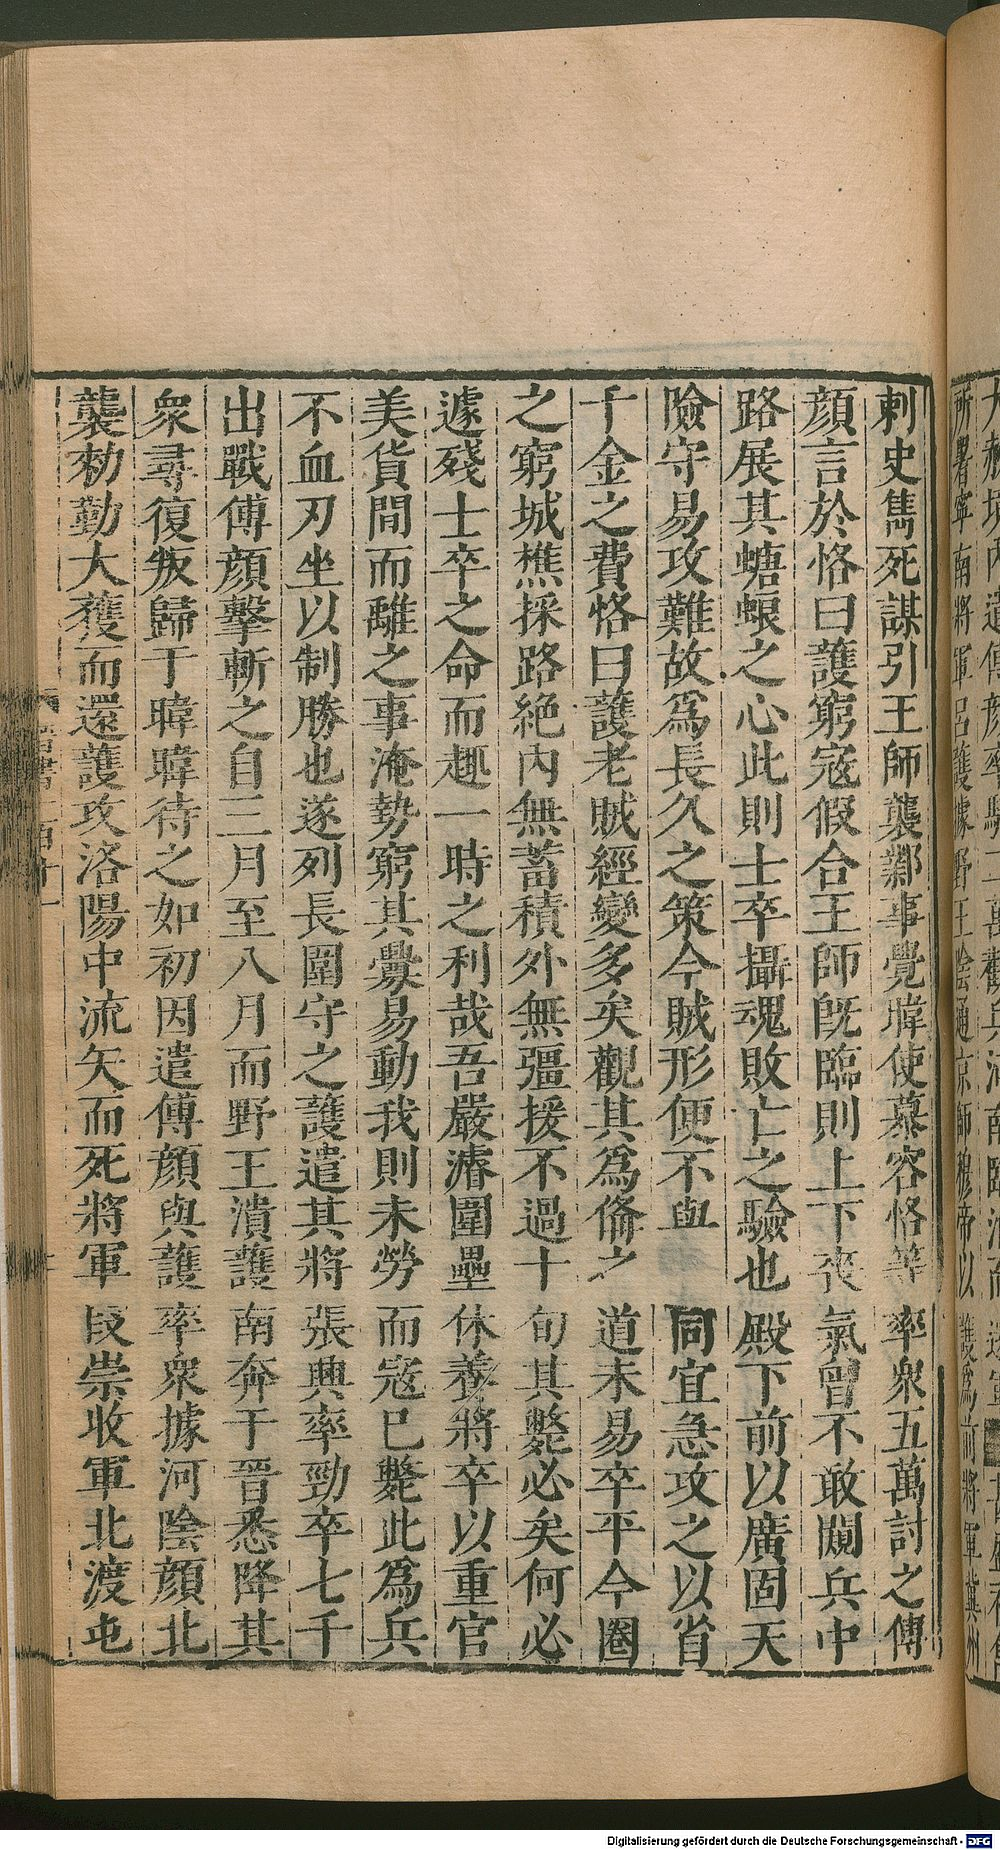 刺史雋死謀引王師襲鄴事覺暐使慕容恪等率衆五萬討之傅
顏言於恪曰護窮寇假合王師旣臨則上下喪氣曾不敢闚兵中
路展其螗蜋之心此則士卒攝魂敗亡之驗也殿下前以廣固天
險守易攻難故爲長久之策今賊形便不與同宜急攻之以省
千金之費恪曰護老賊經變多矣觀其爲備之道未易卒平今圈
之窮城樵採路絕內無蓄積外無彊援不過十旬其斃必矣何必
遽殘士卒之命而趣一時之利哉吾嚴濬圍壘休養將卒以重官
美貨間而離之事淹勢窮其釁易動我則未勞而寇已斃此爲兵
不血刃坐以制勝也遂列長圍守之護遣其將張興率勁卒七千
出戰傅顏擊斬之自三月至八月而野王潰護南奔于晉悉降其
衆尋復叛歸于暐暐待之如初因遣傅顏與護率衆據河陰顏北
襲勑勤大獲而還護攻洛陽中流矢而死將軍段崇收軍北渡屯
Digitalisierung gefördert durch die Deutsche Forschungsgemeinschaft - DFG